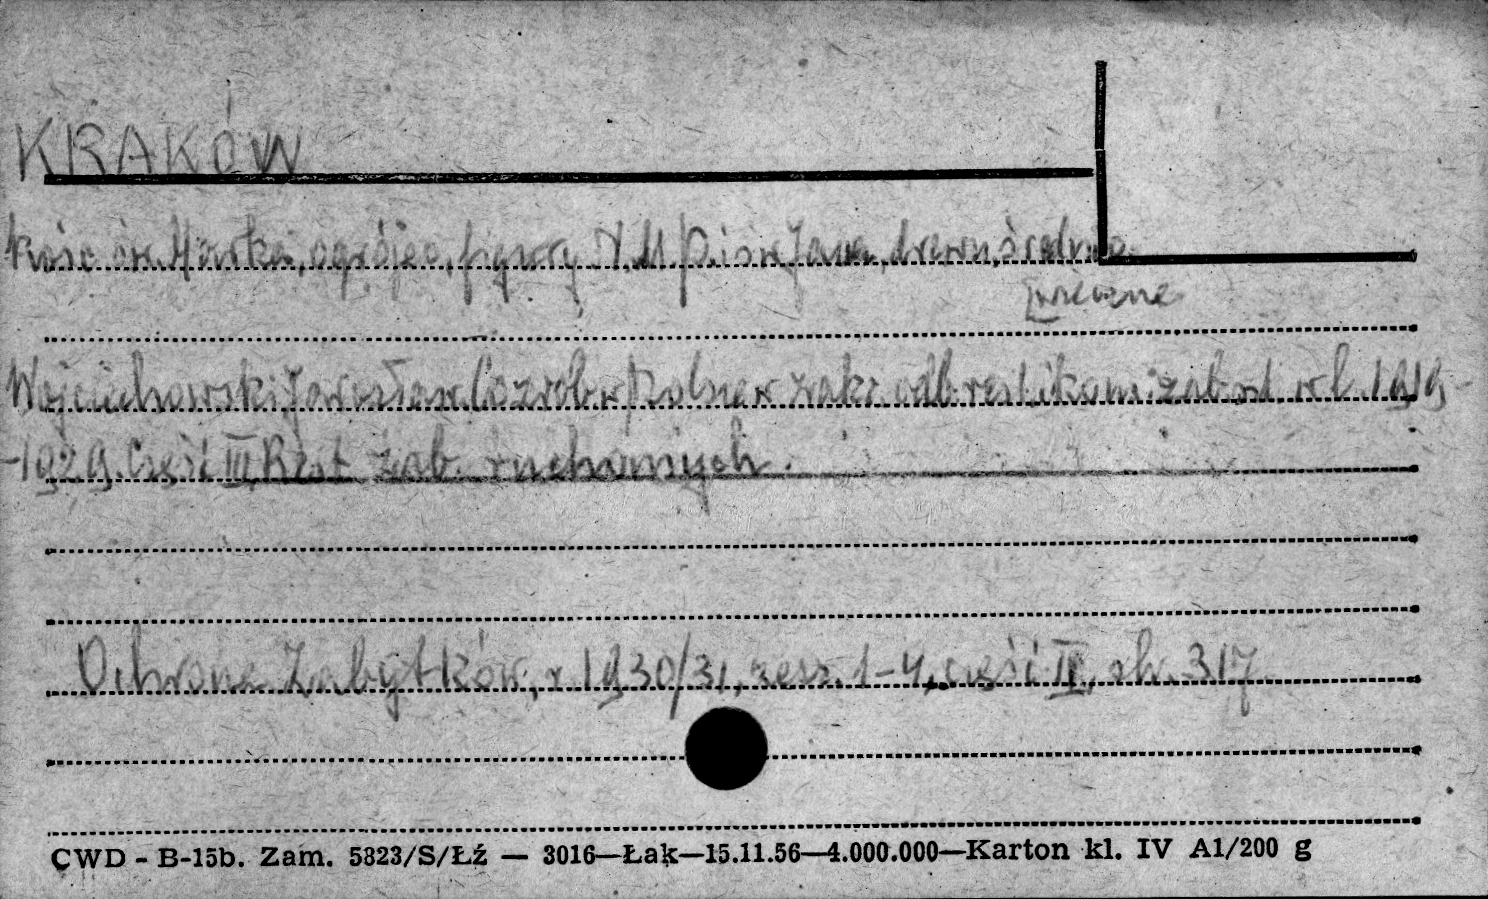 KRAKÓW
Kośc. św. Marka, ogrójec, figury N.M.P. i św. Jana, drewn. średnio
wieczne
Wojciechowski Jarosław. Co zrobił w Polsce w zakr. odb. rest. i kons. zab. od. w l. 1919-
-1929. Część III, Rest. zab. ruchomych.
Ochrona Zabytków, r. 1930/31, zesz. 1-4, część II, sh. 317
CWD - B-15b. Zam. 5823/S/Łź — 3016—Łąk—15.11.56—4.000.000—Karton kl. IV A1/200 g